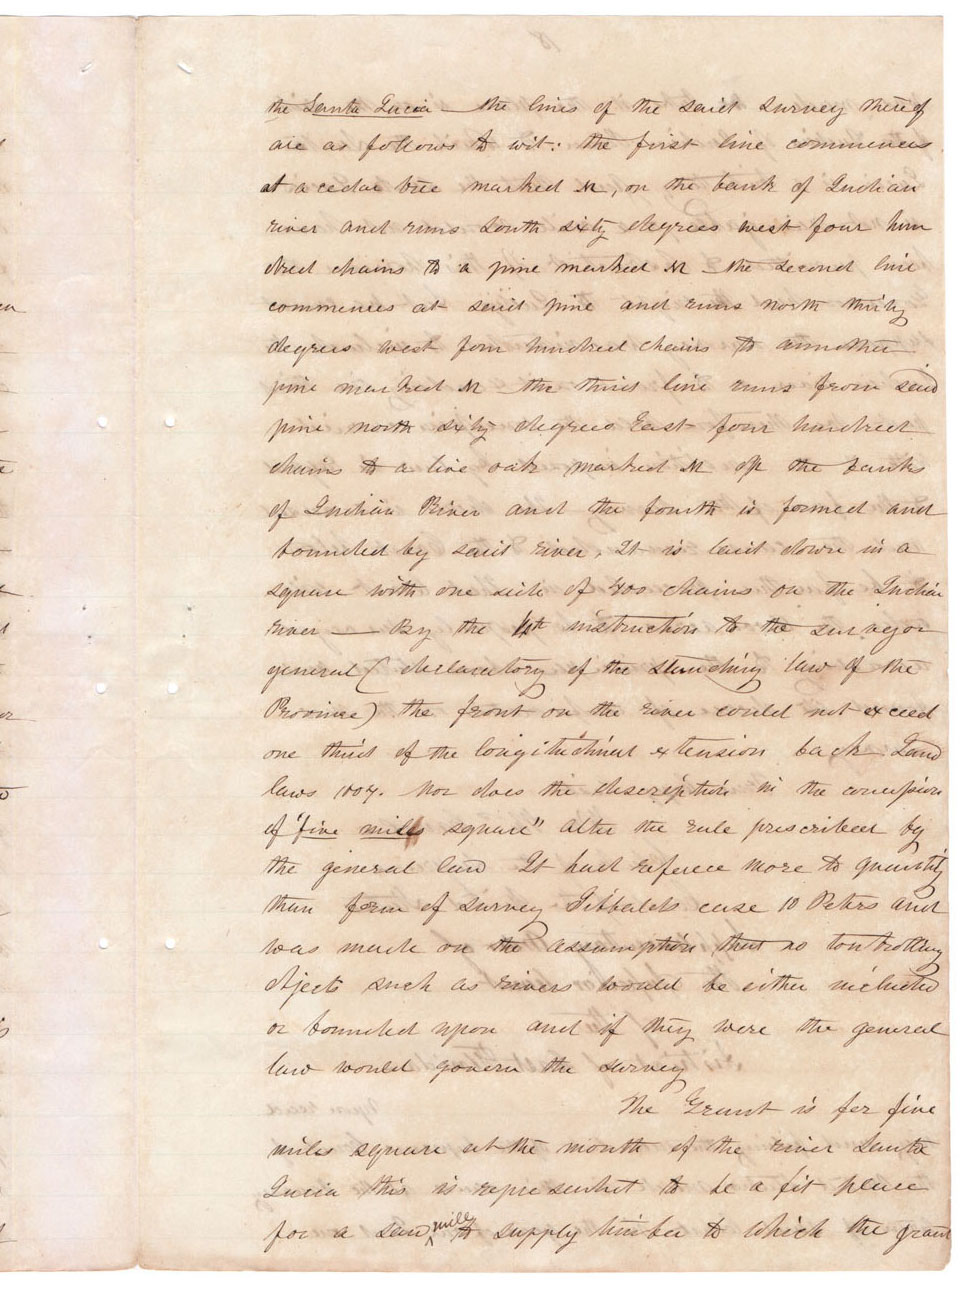 the Santa Lucia – the lines of the said survey thereof
are as follows to wit: the first line commences
at a cedar tree marked M, on the bank of Indian
river and runs South sixty degrees west four hun
dred chains to a pine marked M – the second line
commences at said pine and runs north thirty
degrees west four hundred chains to annother
pine marked M – the third line runs from said
pine north sixty degrees East four hundred
chains to a live oak marked M on the banks
of Indian River and the fourth is formed and
bounded by said river. It is laid down in a
square with one side of 400 chains on the Indian
river — By the 4th instruction to the surveyor
general (declaratory of the standing law of the
Province) the front on the river could not exceed
one third of the longitudinal extension back Land
laws 1007. Nor does the description in the concession
of "five miles square" alter the rule prescribed by
the general law It had refence more to quantity
than form of survey Sibbalds case 10 Peters and
was made on the assumption that no controlling
objects such as rivers would be either included
or bounded upon and if they were the general
law would govern the survey
The Grant is for five
miles square at the mouth of the river Santa
Lucia this is represented to be a fit place
for a saw mill to supply timber to which the grant